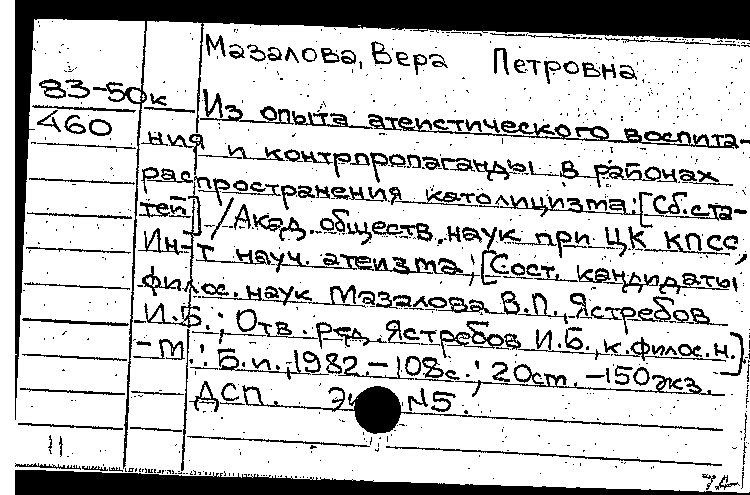 Мазалова, Вера Петровна
83-50к
460
Из опыта атеистического воспита-
ния и контрпропаганды в районах
распространения католицизма: [Сб. ста-
тей] / Акад. обществ. наук при ЦК КПСС,
Ин-т науч. атеизма; [Сост. кандидаты
филос. наук Мазалова В.П., Ястребов
И.Б.; Отв. ред. Ястребов И.Б., к.филос.н.]
-М.: Б.и., 1982. - 108с.; 20см. - 150экз.
ДСП. №5.
11